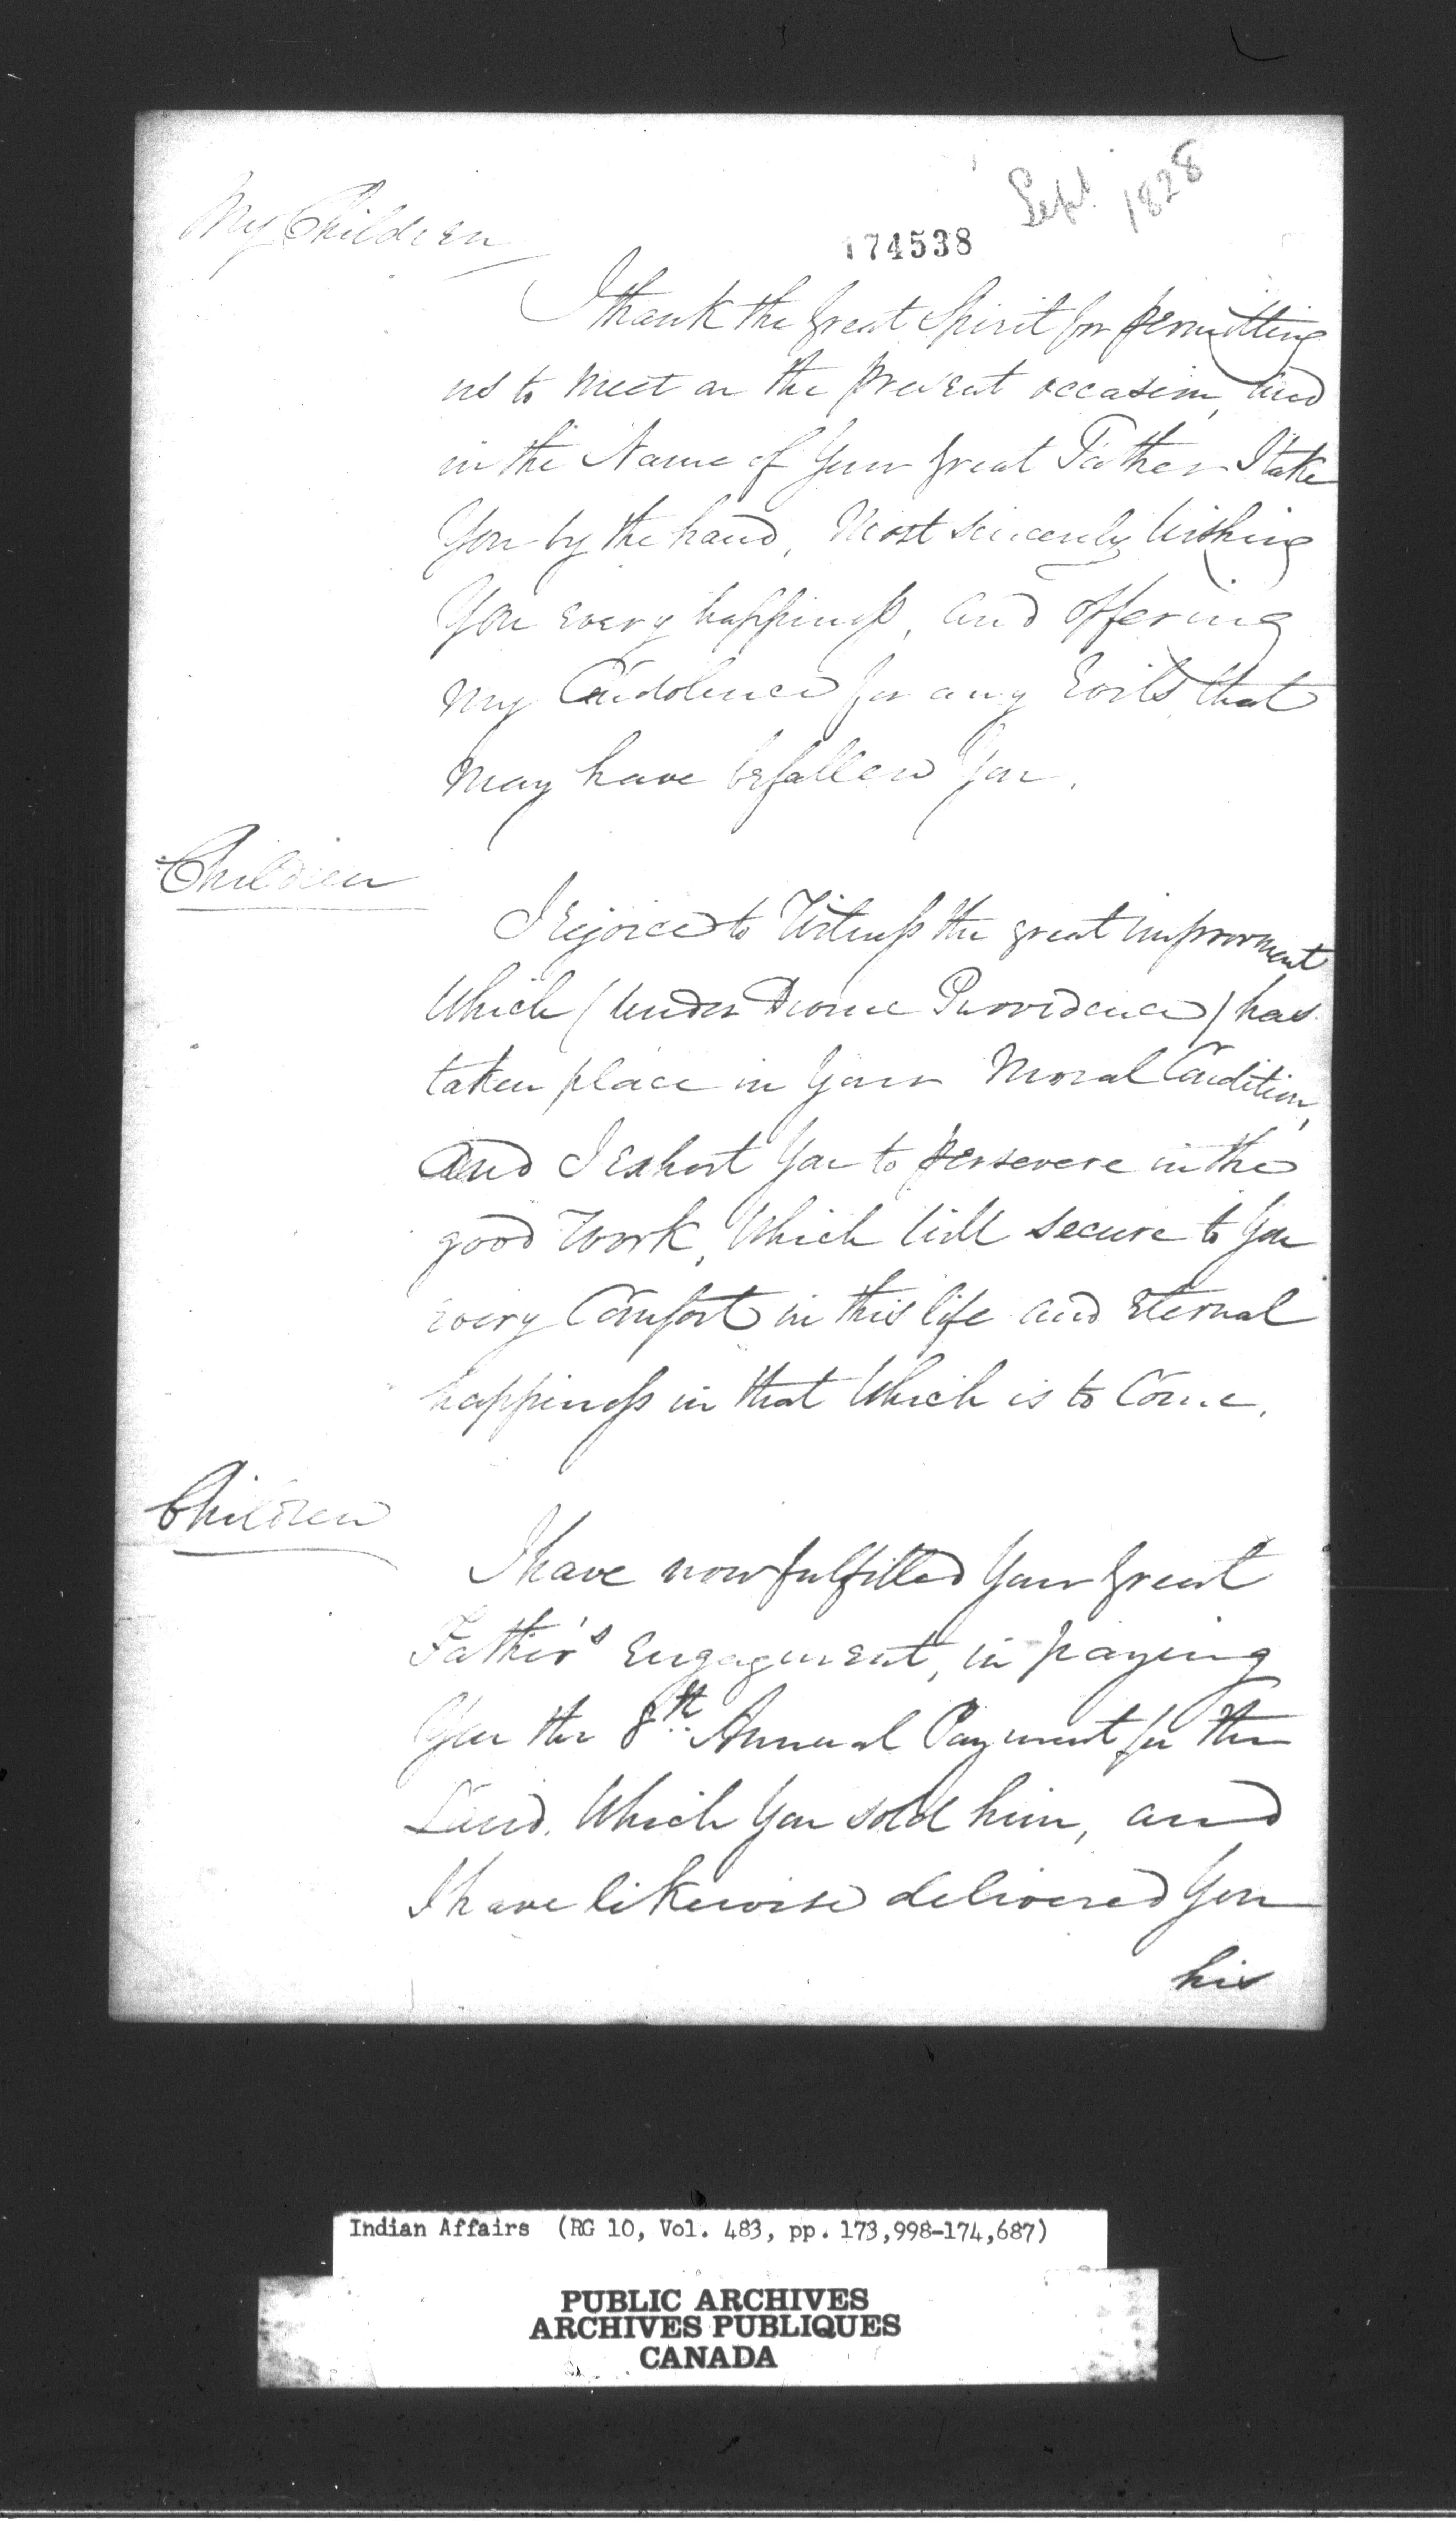 Sept 1828
My Children
174538
I thank the Great Spirit for permitting
us to meet on the present occasion, and
in the Name of Your Great Father I take
You by the hand, Most sincerely Wishing
You every happiness, and offering
my Condolence for any Evils that
may have befallen You.
Children
I rejoice to Witness the great improvment
Which (Under Divine Providence) has
taken place in Your Moral Condition,
and I exhort You to persevere in the
good Work, Which Will secure to You
every Comfort in this life and Eternal
happiness in that Which is to Come.
Children
I have now fulfilled Your Great
Father's Engagement, in paying
You the 8th Annual Payment for the
Land Which You sold him, and
I have likewise delivered You
his
Indian Affairs (RG 10, Vol. 483, pp. 173,998-174,687)
PUBLIC ARCHIVES
ARCHIVES PUBLIQUES
CANADA